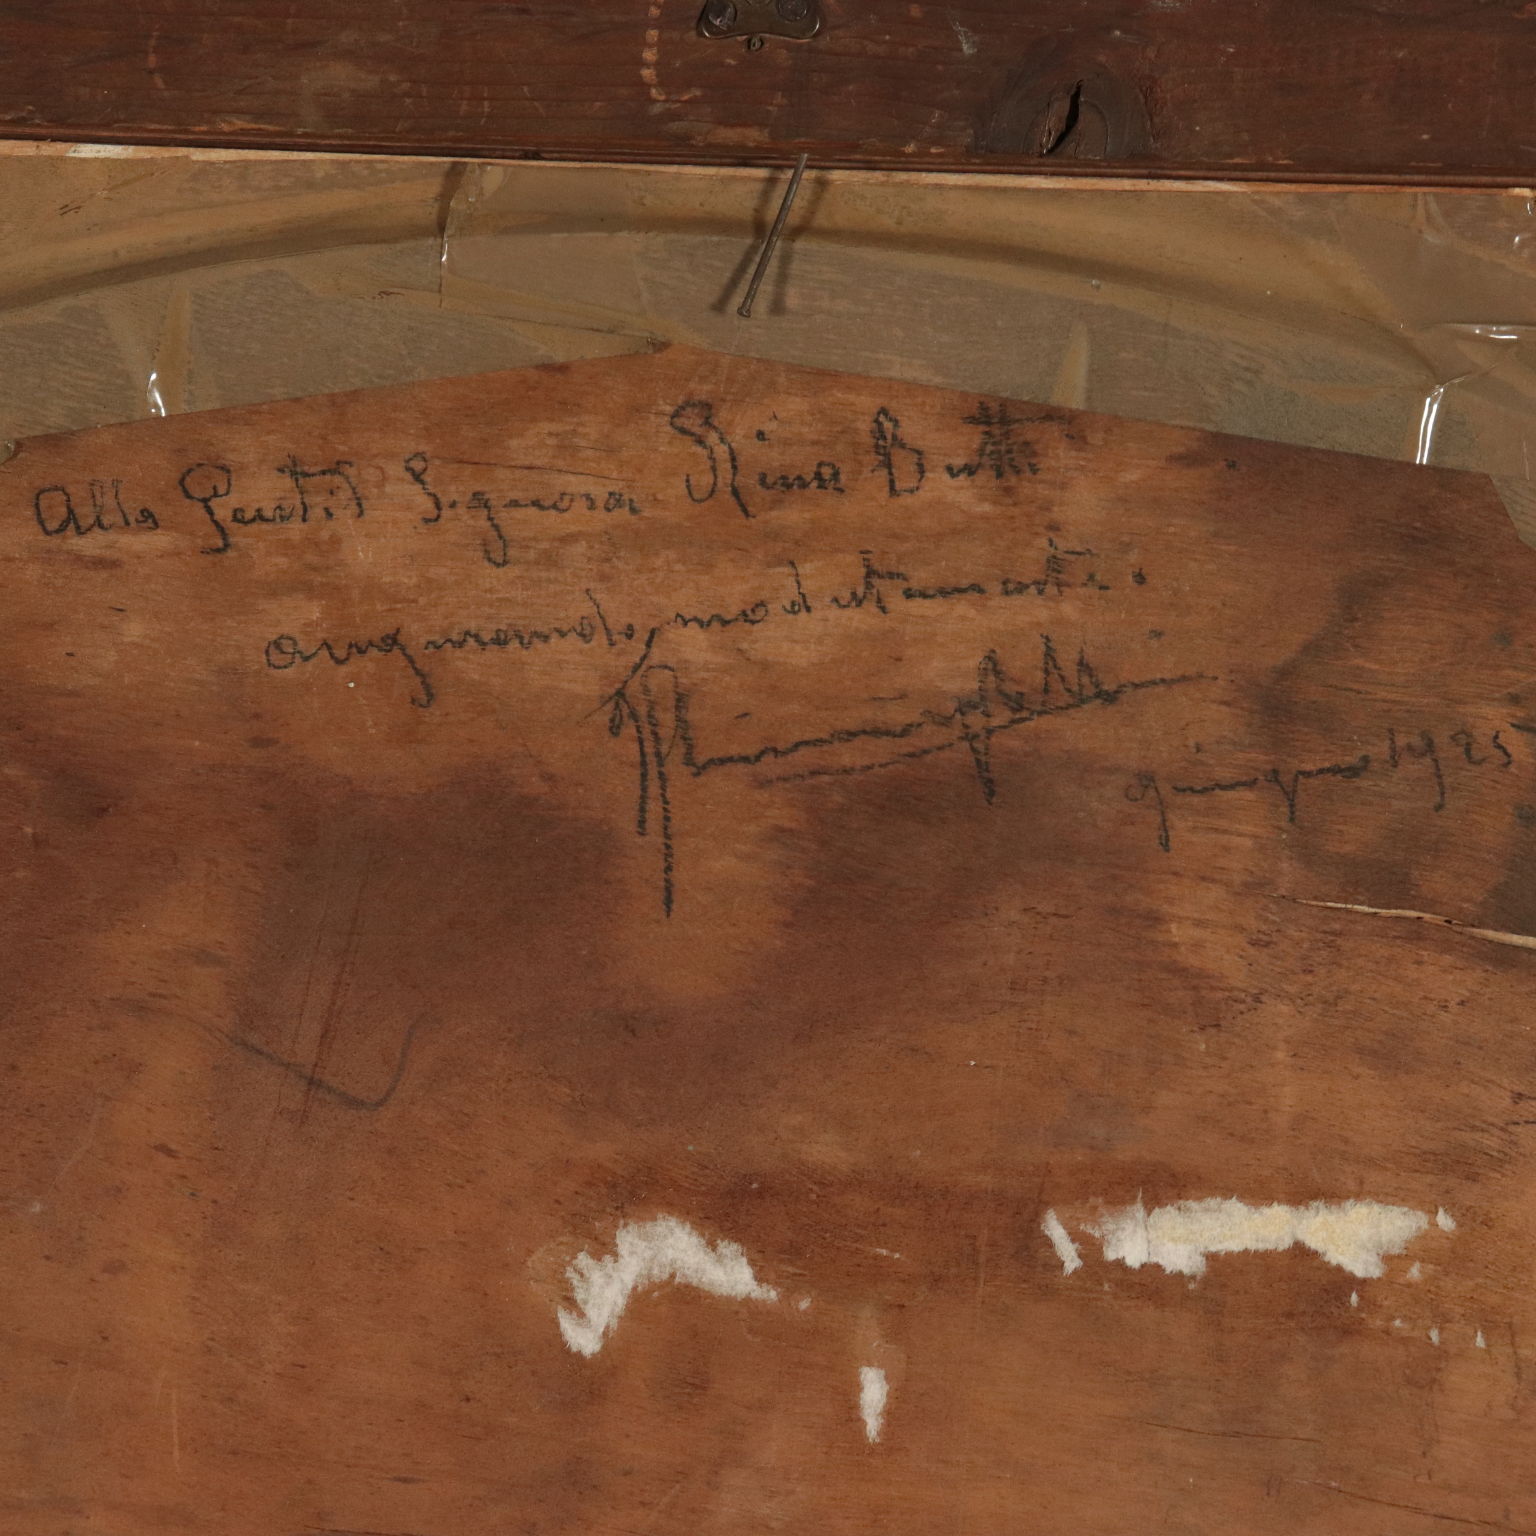 Alla Gentil Signora Rina Butti
augurando modestamente.
giugno 1925